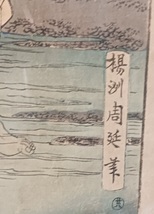 楊洲周延筆